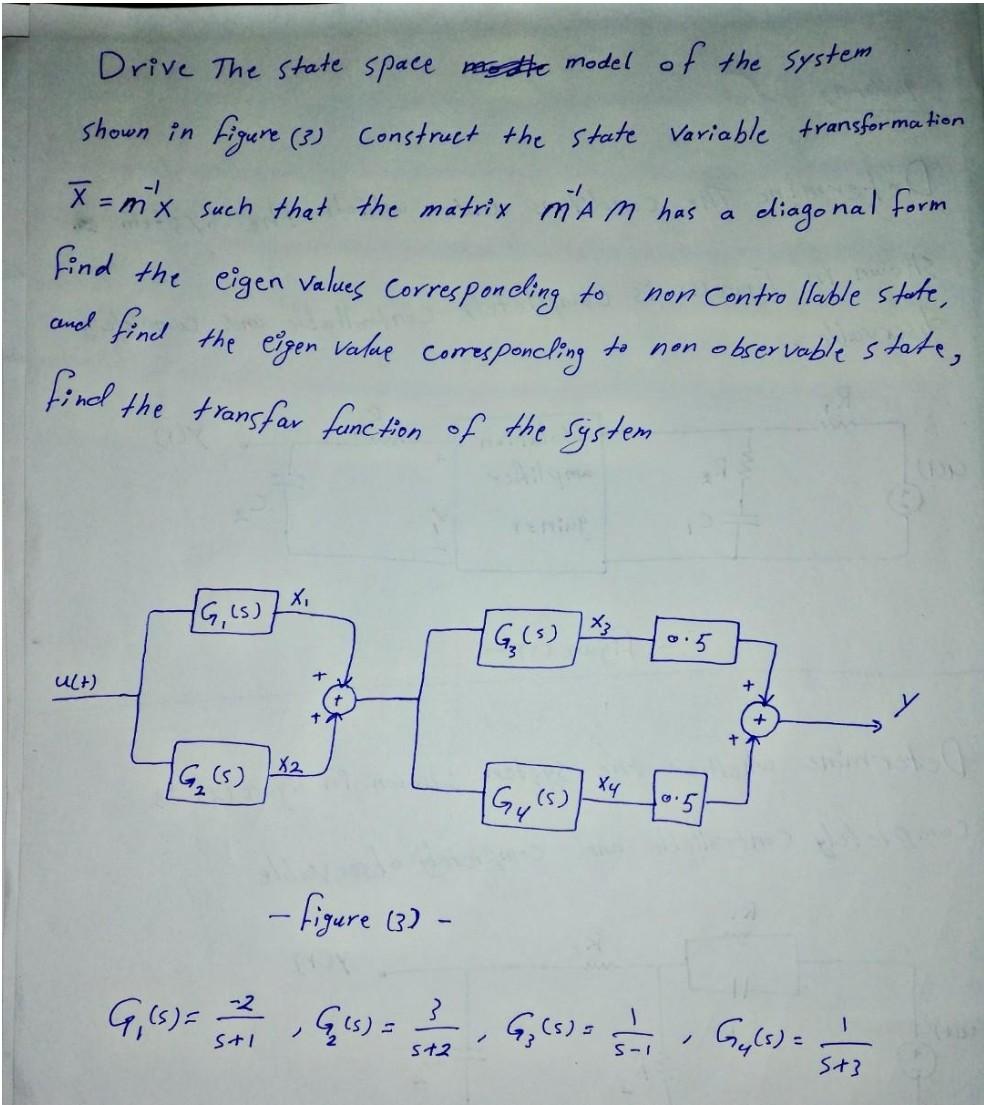 Drive The state space model of the system
shown in figure (3) Construct the state variable transformation
x̄ = m⁻¹x such that the matrix m⁻¹A M has a diagonal form
find the eigen values Corresponding to non Controllable state,
and find the eigen value corresponding to non observable state,
find the transfar function of the system
G₁(s) X₁
G₃(s) X₃ 0.5
u(t) + + + + + + y
G₂(s) X2
G₄(s) X₄ 0.5
- figure (3) -
G₁(s) = -2/(s+1) , G₂(s) = 3/(s+2) , G₃(s) = 1/(s-1) , G₄(s) = 1/(s+3)